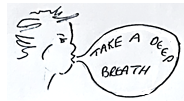 TAKE A DEEP
BREATH